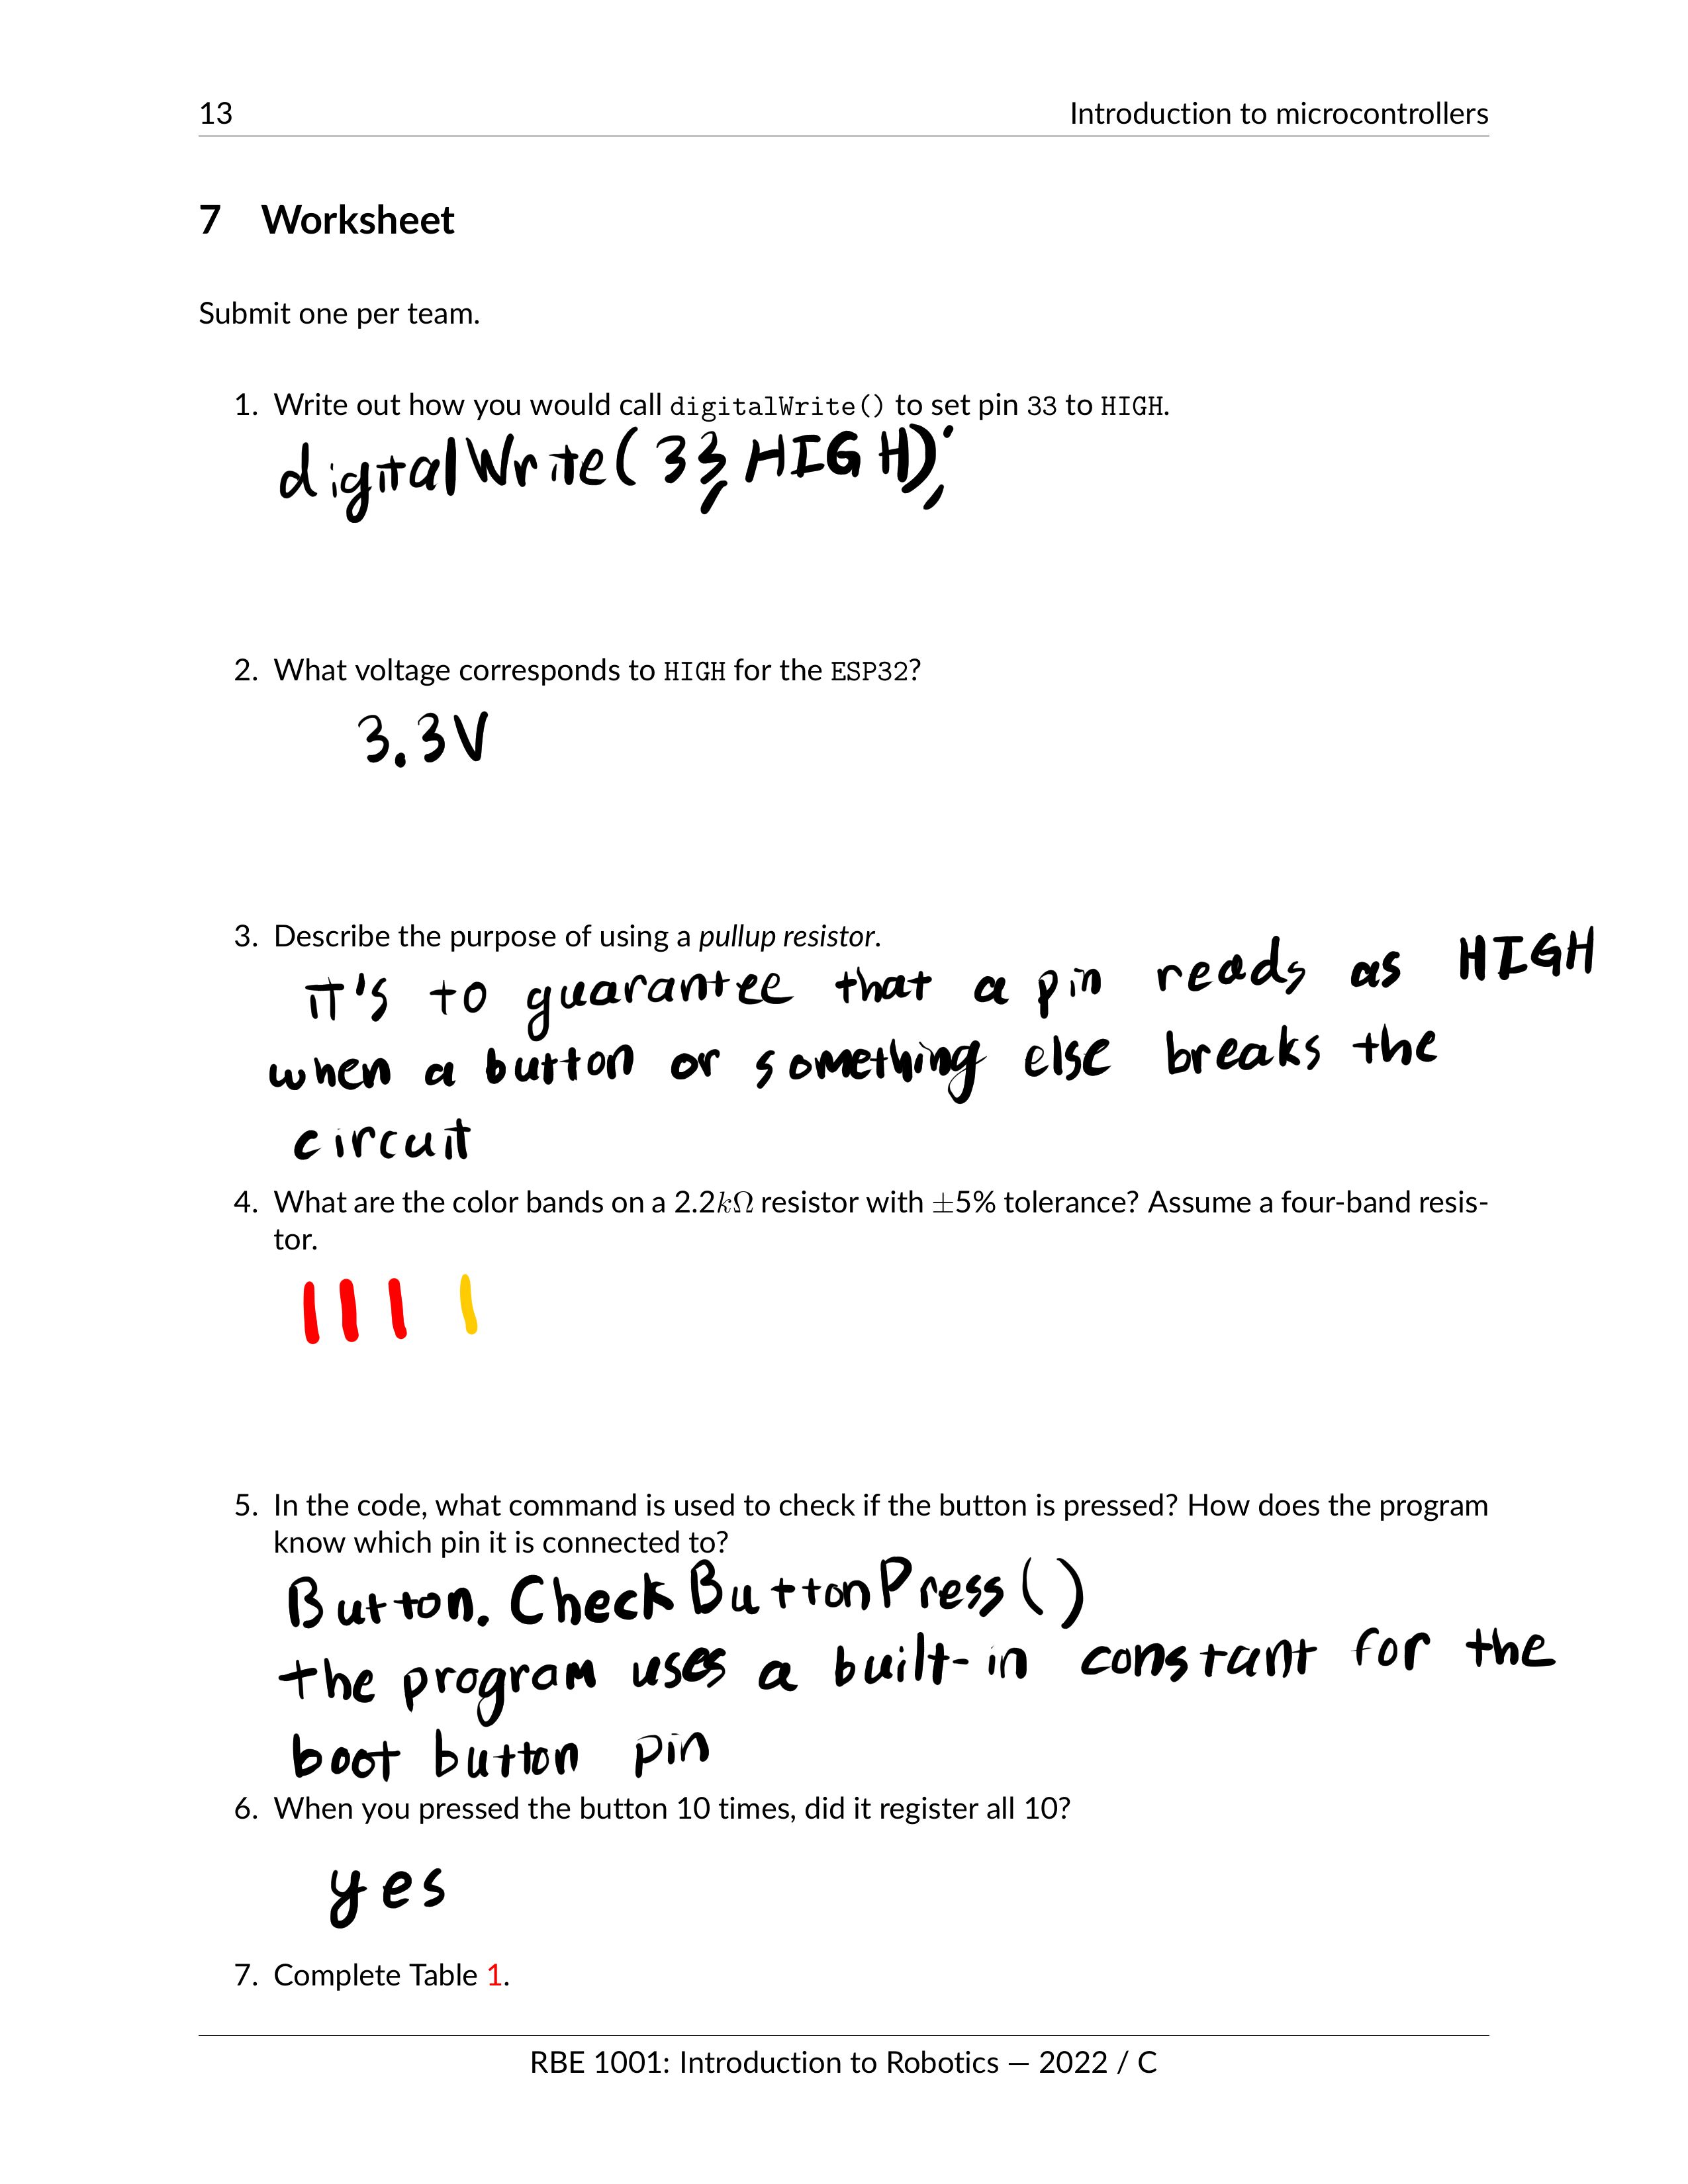 13 Introduction to microcontrollers
7 Worksheet
Submit one per team.
1. Write out how you would call digitalWrite() to set pin 33 to HIGH.
digitalWrite(33, HIGH);
2. What voltage corresponds to HIGH for the ESP32?
3.3V
3. Describe the purpose of using a pullup resistor.
it's to guarantee that a pin reads as HIGH
when a button or something else breaks the
circuit
4. What are the color bands on a 2.2kΩ resistor with ±5% tolerance? Assume a four-band resis-
tor.
5. In the code, what command is used to check if the button is pressed? How does the program
know which pin it is connected to?
Button.CheckButtonPress()
the program uses a built-in constant for the
boot button pin
6. When you pressed the button 10 times, did it register all 10?
yes
7. Complete Table 1.
RBE 1001: Introduction to Robotics — 2022 / C